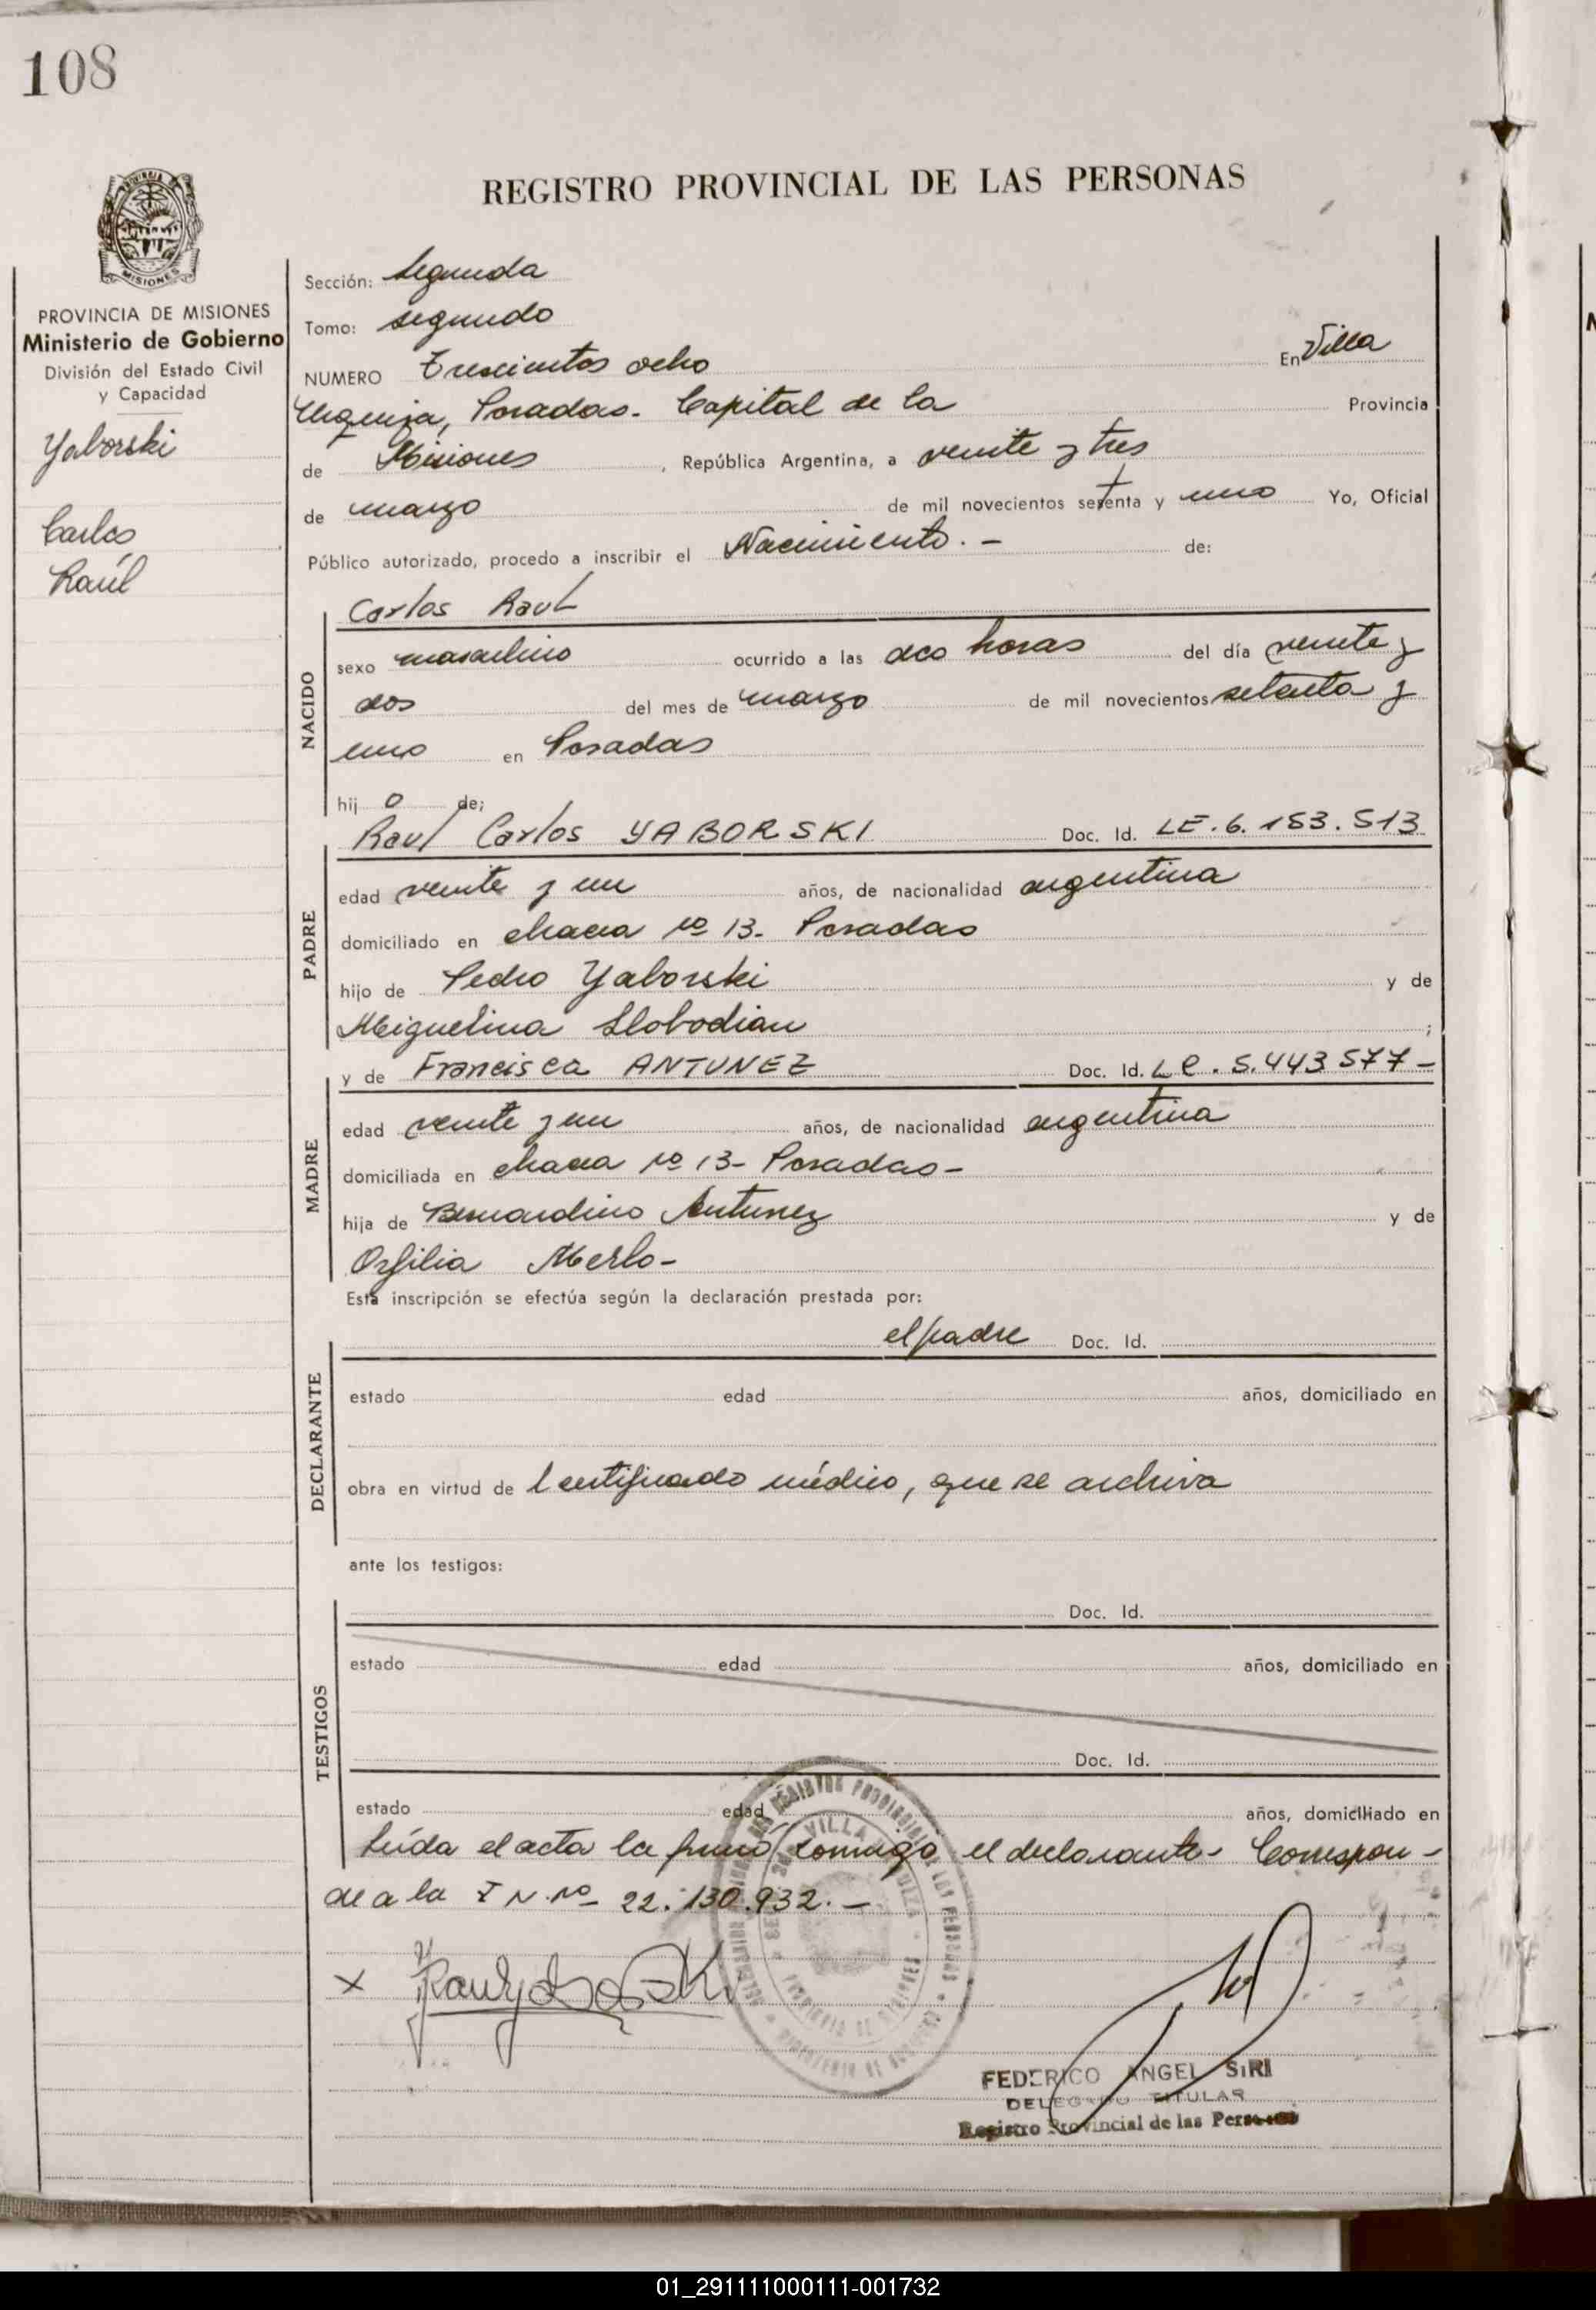 108
REGISTRO PROVINCIAL DE LAS PERSONAS
MISIONES
PROVINCIA DE MISIONES
Ministerio de Gobierno
División del Estado Civil
y Capacidad
Yaborski
Carlos
Raúl
Sección: Segunda
Tomo: segundo
NUMERO Trescientos ocho En Villa
Urquiza, Posadas. Capital de la Provincia
de Misiones, República Argentina, a veinte y tres
de marzo de mil novecientos setenta y uno Yo, Oficial
Público autorizado, procedo a inscribir el Nacimiento. - de:
NACIDO
Carlos Raul
sexo masculino ocurrido a las dos horas del día veinte y
dos del mes de marzo de mil novecientos setenta y
uno en Posadas
hij o de;
PADRE
Raul Carlos YABORSKI Doc. Id. LE. 6. 153. 513
edad veinte y un años, de nacionalidad argentina
domiciliado en chacra nº 13- Posadas
hijo de Pedro Yaborski y de
Miguelina Slobodian ;
MADRE
y de Francisca ANTUNEZ Doc. Id. LC. 5.443 577-
edad veinte y un años, de nacionalidad argentina
domiciliada en chacra nº 13- Posadas-
hija de Bernardino Antunez y de
Orfilia Merlo-
Esta inscripción se efectúa según la declaración prestada por:
DECLARANTE
el padre Doc. Id.
estado edad años, domiciliado en
obra en virtud de l certificado médico, que se archiva
ante los testigos:
TESTIGOS
Doc. Id.
estado edad años, domiciliado en
Doc. Id.
estado edad años, domiciliado en
Leída el acta la firmó conmigo el declarante- Correspon-
de a la I N. nº 22.130.932.-
x Raul Yaborski
FEDERICO ANGEL SIRI
DELEGADO TITULAR
Registro Provincial de las Personas
01_291111000111-001732